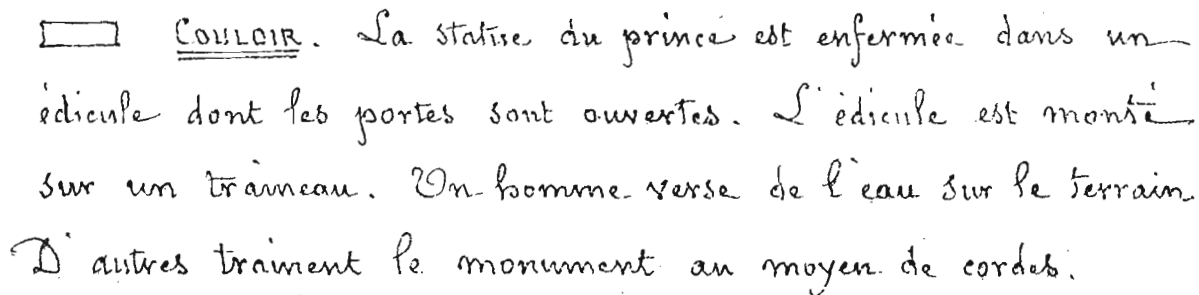 COULOIR. La statue du prince est enfermée dans un
édicule dont les portes sont ouvertes. L'édicule est monté
sur un traineau. Un homme verse de l'eau sur le terrain
D'autres trainent le monument au moyen de cordes.